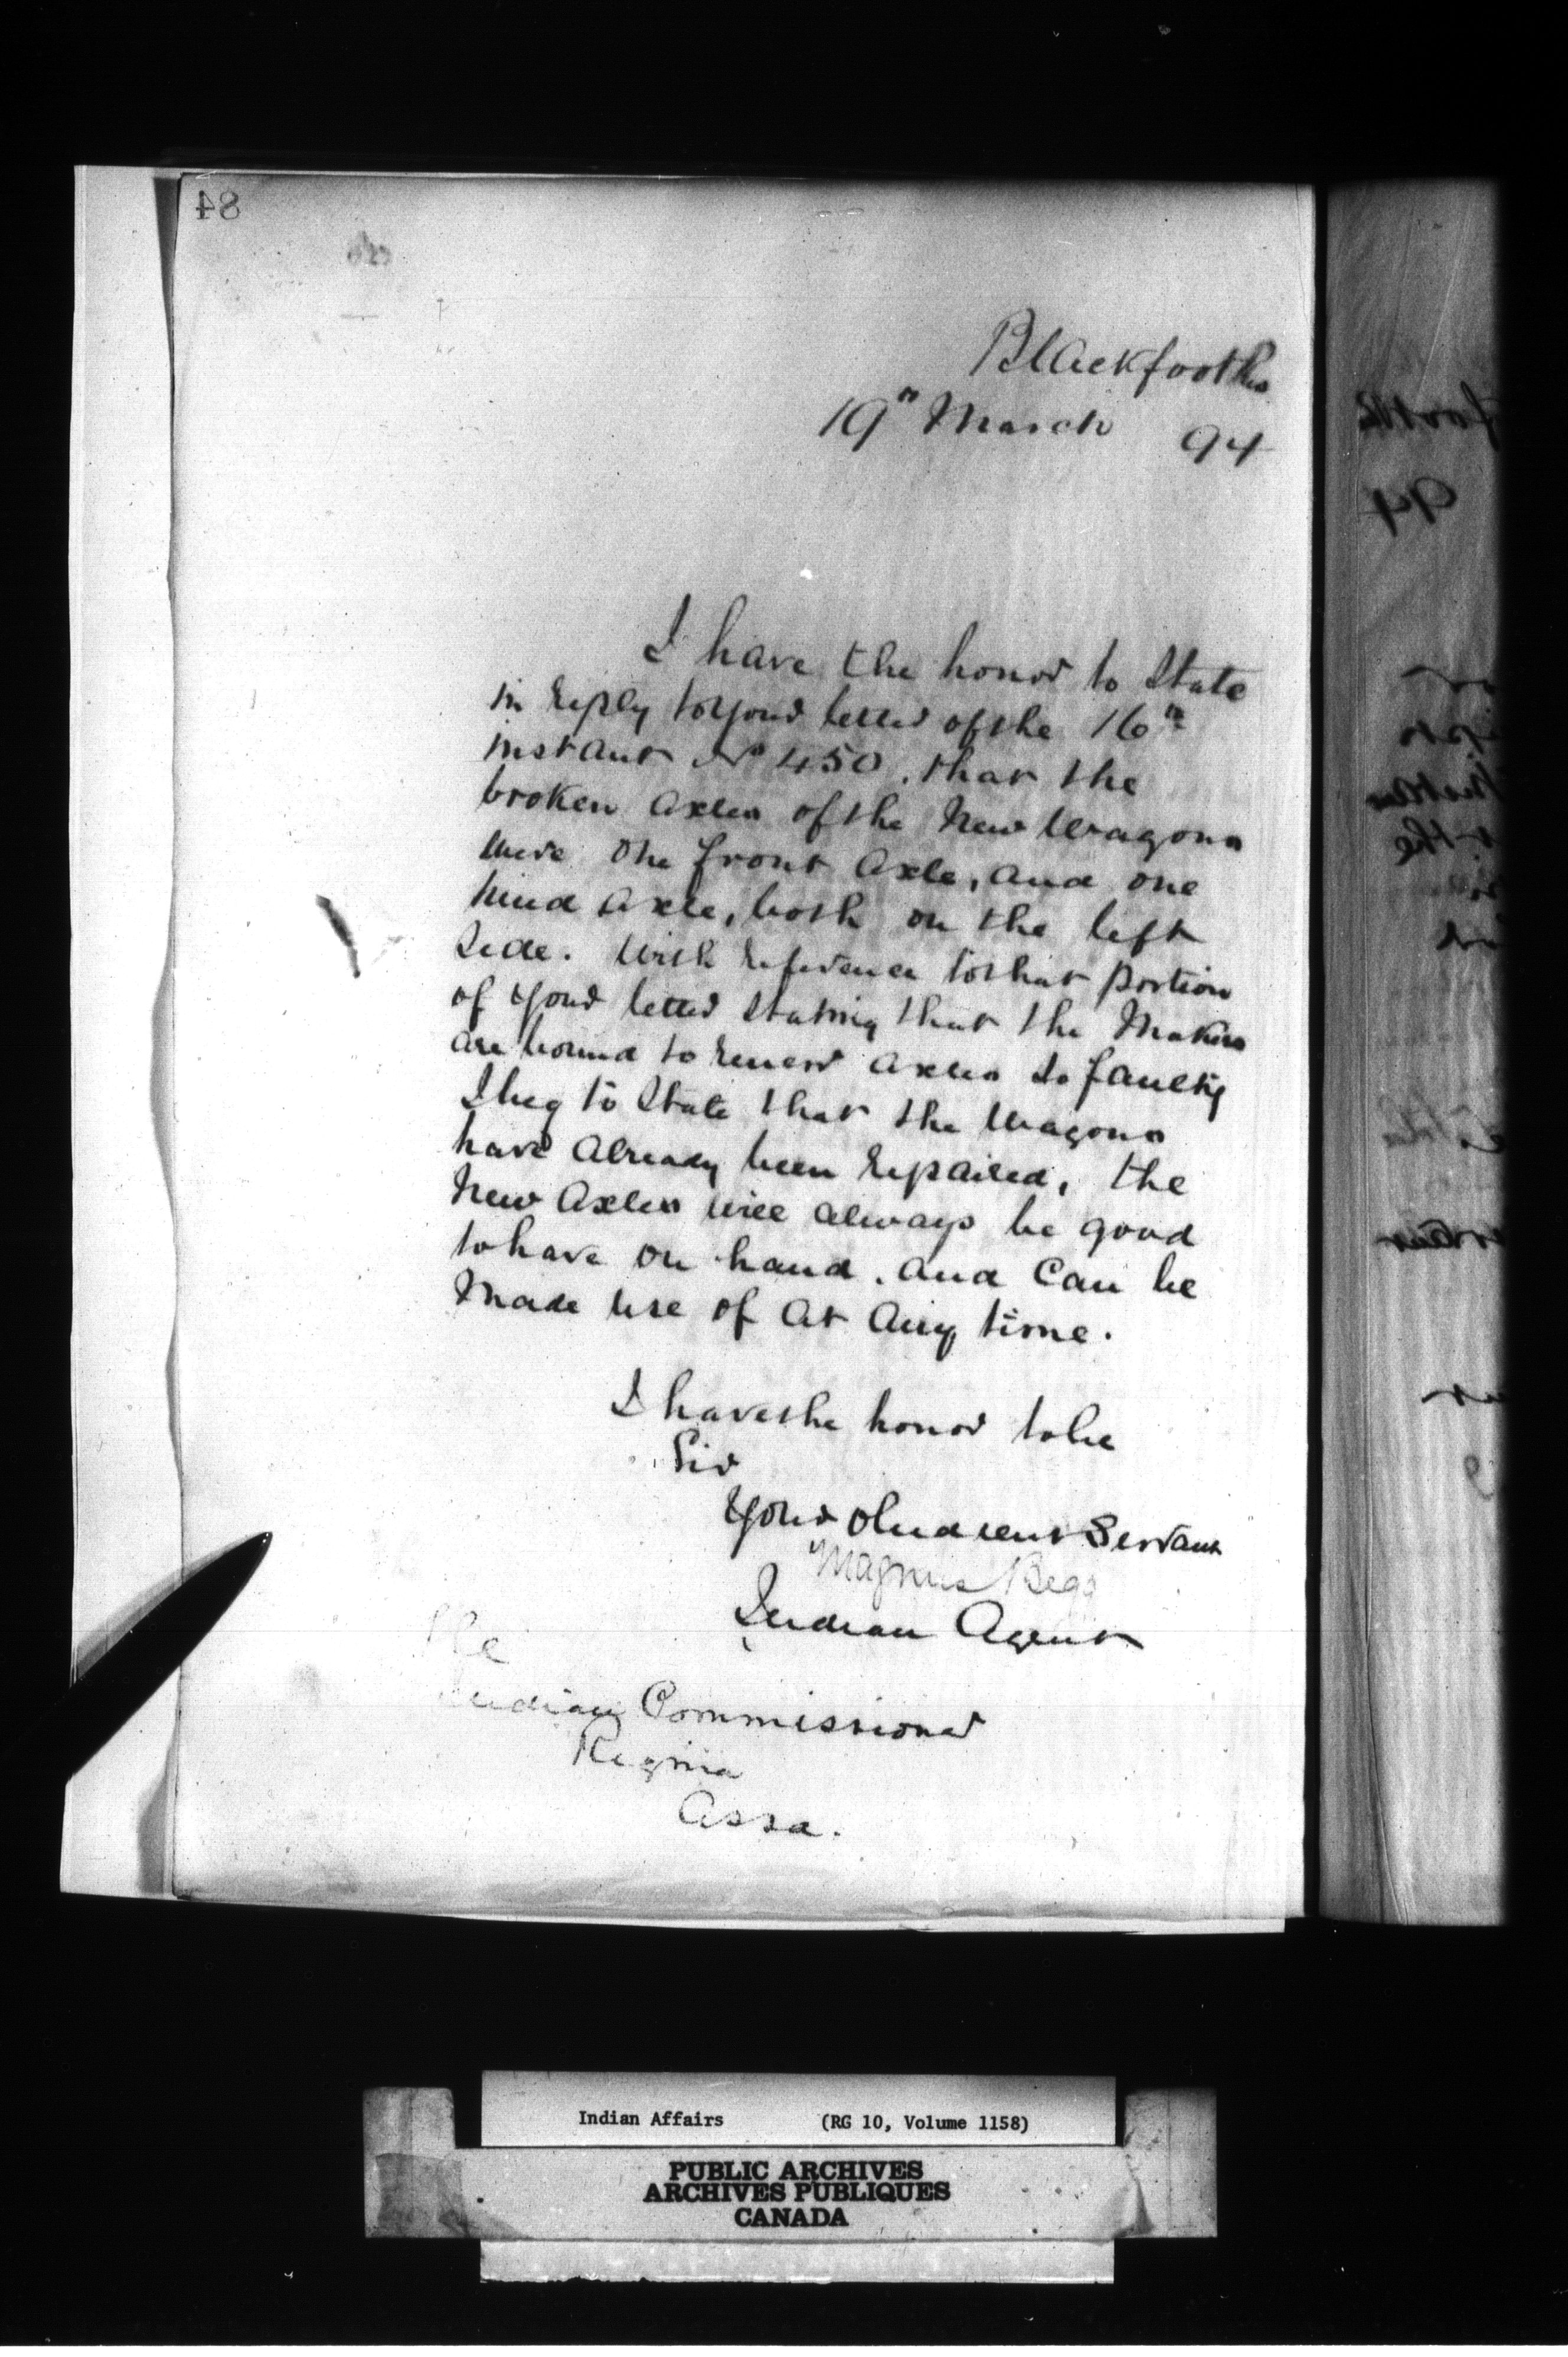 84
Blackfoot Res
19th March 94
I have the honor to State
in reply to your letter of the 16th
instant No 450, that the
broken axles of the New Wagons
were one front axle, and one
hind axle, both on the left
side. With reference to that portion
of your letter stating that the Makers
are bound to renew axles so faulty
I beg to State that the Wagons
have already been repaired, the
New Axles will always be good
to have on hand, and can be
Made use of at any time.
I have the honor to be
Sir
Your obedient Servant
Magnus Begg
Indian Agent
The
Indian Commissioner
Regina
Assa.
Indian Affairs (RG 10, Volume 1158)
PUBLIC ARCHIVES
ARCHIVES PUBLIQUES
CANADA